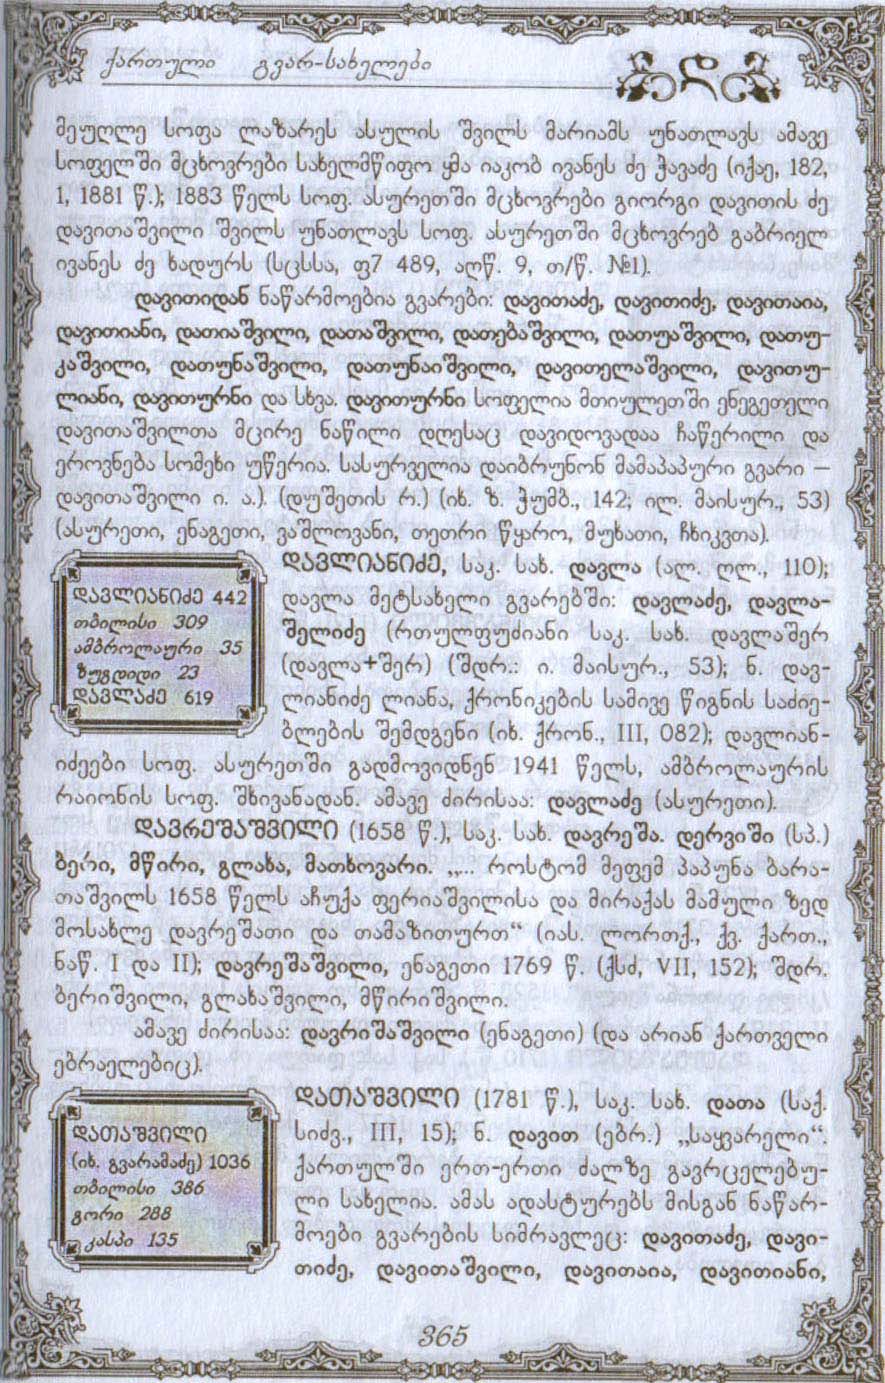 ქართული გვარ-სახელები
დ
მეუღლე სოფა ლაზარეს ასულის შვილს მარიამს უნათლავს ამავე
სოფელში მცხოვრები სახელმწიფო ყმა იაკობ ივანეს ძე ჭავაძე (იქვე, 182,
1, 1881 წ.); 1883 წელს სოფ. ასურეთში მცხოვრები გიორგი დავითის ძე
დავითაშვილი შვილს უნათლავს სოფ. ასურეთში მცხოვრებ გაბრიელ
ივანეს ძე ხადურს (სცსსა, ფ7 489, აღწ. 9, თ/წ. №1).
დავითიდან ნაწარმოებია გვარები: დავითაძე, დავითიძე, დავითაია,
დავითიანი, დათიაშვილი, დათაშვილი, დათებაშვილი, დათუაშვილი, დათუ-
კაშვილი, დათუნაშვილი, დათუნაიშვილი, დავითელაშვილი, დავითუ-
ლიანი, დავითურნი და სხვა. დავითურნი სოფელია მთიულეთში ენეგეთელი
დავითაშვილთა მცირე ნაწილი დღესაც დავიდოვადაა ჩაწერილი და
ეროვნება სომეხი უწერია. სასურველია დაიბრუნონ მამაპაპური გვარი –
დავითაშვილი ი. ა.). (დუშეთის რ.) (იხ. ზ. ჭუმბ., 142; ილ. მაისურ., 53)
(ასურეთი, ენაგეთი, ვაშლოვანი, თეთრი წყარო, მუხათი, ჩხიკვთა).
დავლიანიძე 442
თბილისი 309
ამბროლაური 35
ზუგდიდი 23
დავლაძე 619
დავლიანიძე, საკ. სახ. დავლა (ალ. ღლ., 110);
დავლა მეტსახელი გვარებში: დავლაძე, დავლა-
შელიძე (რთულფუძიანი საკ. სახ. დავლაშერ
(დავლა+შერ) (შდრ.: ი. მაისურ., 53); ნ. დავ-
ლიანიძე ლიანა, ქრონიკების სამივე წიგნის საძიე-
ბლების შემდგენი (იხ. ქრონ., III, 082); დავლიან-
იძეები სოფ. ასურეთში გადმოვიდნენ 1941 წელს, ამბროლაურის
რაიონის სოფ. შხივანადან. ამავე ძირისაა: დავლაძე (ასურეთი).
დავრეშაშვილი (1658 წ.), საკ. სახ. დავრეშა. დერვიში (სპ.)
ბერი, მწირი, გლახა, მათხოვარი. „... როსტომ მეფემ პაპუნა ბარა-
თაშვილს 1658 წელს აჩუქა ფერიაშვილისა და მირაქას მამული ზედ
მოსახლე დავრეშათი და თამაზითურთ“ (იას. ლორთქ., ქვ. ქართ.,
ნაწ. I და II); დავრეშაშვილი, ენაგეთი 1769 წ. (ქსძ, VII, 152); შდრ.
ბერიშვილი, გლახაშვილი, მწირიშვილი.
ამავე ძირისაა: დავრიშაშვილი (ენაგეთი) (და არიან ქართველი
ებრაელებიც).
დათაშვილი
(იხ. გვარამაძე) 1036
თბილისი 386
გორი 288
კასპი 135
დათაშვილი (1781 წ.), საკ. სახ. დათა (საქ.
სიძვ., III, 15); ნ. დავით (ებრ.) „საყვარელი“.
ქართულში ერთ-ერთი ძალზე გავრცელებუ-
ლი სახელია. ამას ადასტურებს მისგან ნაწარ-
მოები გვარების სიმრავლეც: დავითაძე, დავი-
თიძე, დავითაშვილი, დავითაია, დავითიანი,
365